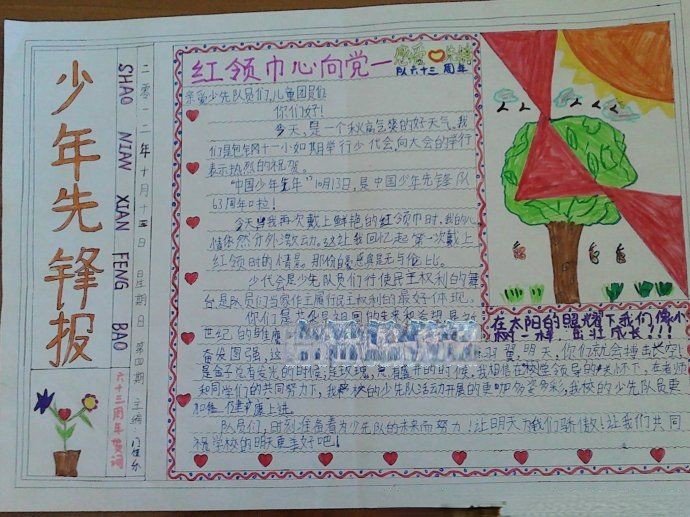 少年先锋报
SHAO NIAN XIAN FENG BAO
二零一二年十月十五日 星期日 第四期 主编
六十三周年贺词
红领巾心向党一
队六十三周年
亲爱少先队员们,儿童团员们
你们好!
今天,是一个秋高气爽的好天气。我
们包钢十一小如期举行少代会,向大会的举行
表示热烈的祝贺。
10月13日,是中国少年先锋队
63周年
今天当我再次戴上鲜艳的红领巾时,我的心
情依然分外激动。这让我回忆起第一次戴上
红领巾时的情景。那份自豪感真是无与伦比。
少代会是少先队员们行使民主权利的舞
台是队员们当家作主履行民主权利的最好体现。
你们是
世纪的雏鹰
奋发图强,这 羽翼,明天,你们就会搏击长空
是金子总有发光的时候,是玫瑰,总有盛开的时候,我相信在校学领导的关怀下,在老师
和同学们的共同努力下,我校的少先队活动开展的更加多姿多彩,我校的少先队员更
加健康上进。
队员们,时刻准备着为少先队的未来而努力!让明天为我们骄傲!让我们共同
祝学校的明天更美好吧!
在太阳的照耀下我们像小
树一样,茁壮成长!!!